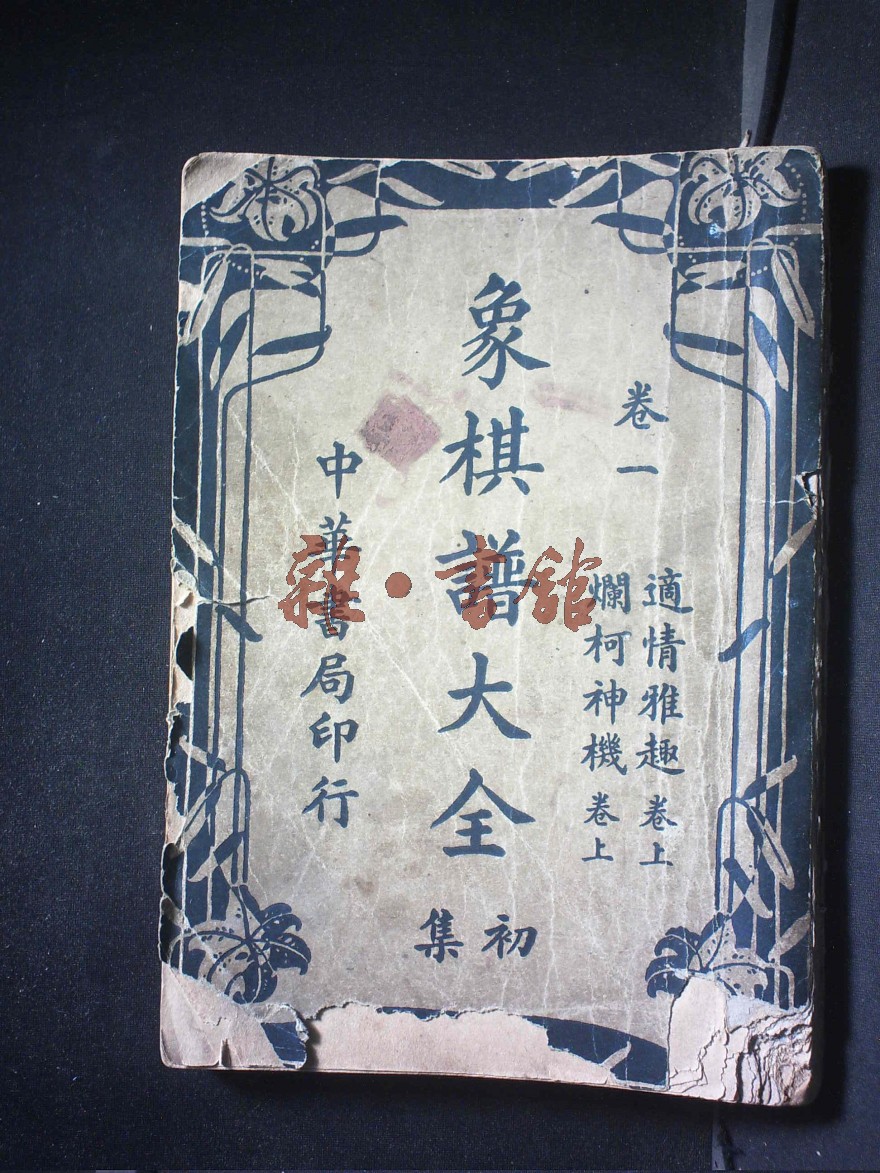 卷一
適情雅趣 卷上
爛柯神機 卷上
象棋譜大全
初集
中華書局印行
雜·書館